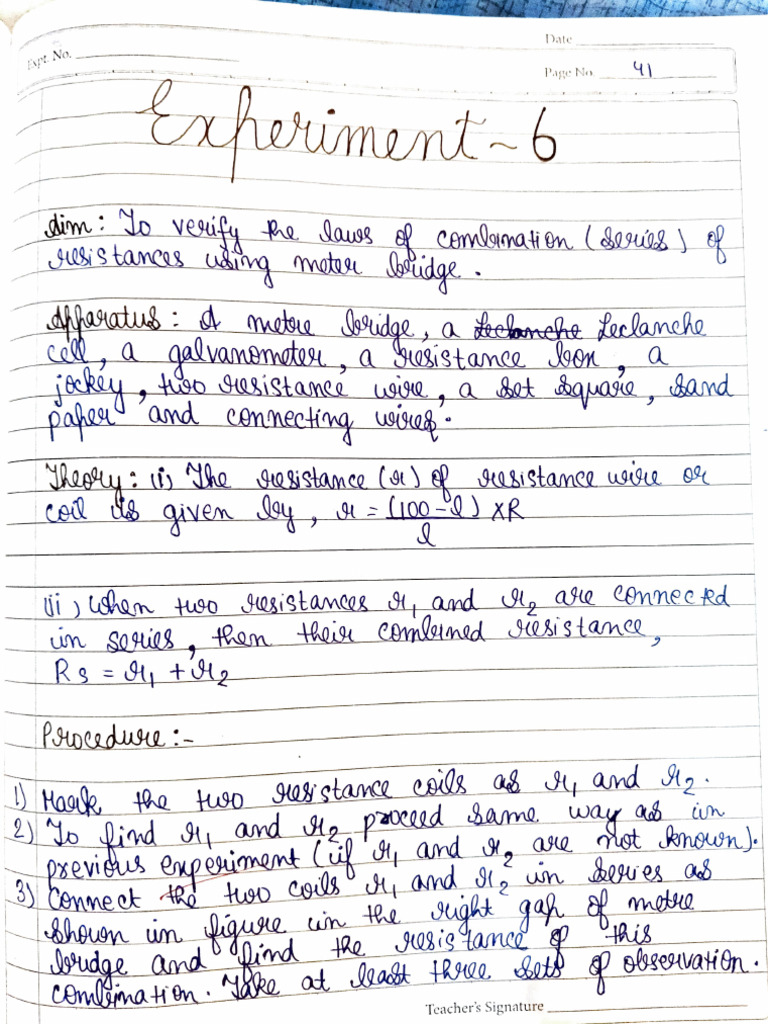 Date
Expt. No.
Page No. 41
Experiment ~ 6
Aim: To verify the laws of combination (series) of
resistances using meter bridge.
Apparatus: A metre bridge, a Leclanche Leclanche
cell, a galvanometer, a resistance box, a
jockey, two resistance wire, a set square, sand
paper and connecting wires.
Theory: (i) The resistance (r) of resistance wire or
coil is given by, r = (100-l) XR
l
(ii) When two resistances r1 and r2 are connected
in series, then their combined resistance,
Rs = r1 + r2
Procedure:-
1) Mark the two resistance coils as r1 and r2.
2) To find r1 and r2 proceed same way as in
previous experiment (if r1 and r2 are not known).
3) Connect the two coils r1 and r2 in series as
shown in figure in the right gap of metre
bridge and find the resistance of this
combination. Take at least three sets of observation.
Teacher's Signature